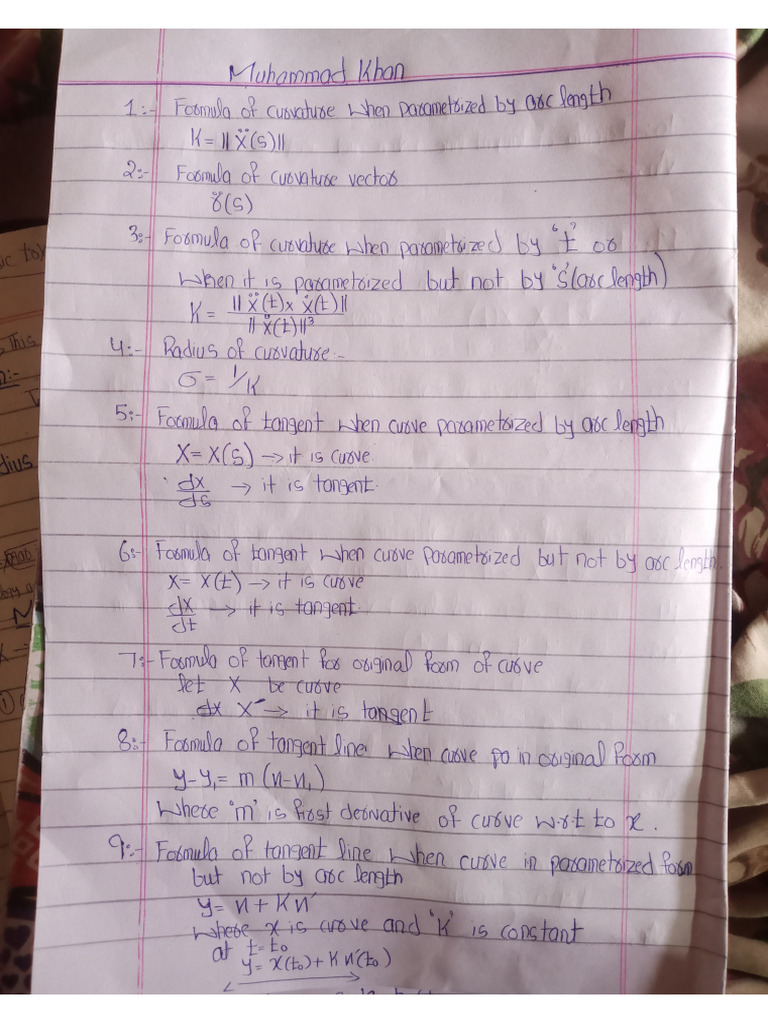 Muhammad Khan
1:- Formula of curvature when parametrized by arc length
K = || Ẍ(s) ||
2:- Formula of curvature vector
γ̈(s)
3:- Formula of curvature when parametrized by 't' or
when it is parametrized but not by 's' (arc length)
K = || Ẍ(t) x Ẋ(t) || / || Ẋ(t) ||³
4:- Radius of curvature:-
σ = 1/K
5:- Formula of tangent when curve parametrized by arc length
X = X(s) → it is curve
dx/ds → it is tangent
6:- Formula of tangent when curve parametrized but not by arc length.
X = X(t) → it is curve
dx/dt → it is tangent
7:- Formula of tangent for original form of curve
let X be curve
X' → it is tangent
8:- Formula of tangent line when curve in original form
y-y₁ = m (n-n₁)
Where 'm' is first derivative of curve w.r.t to x.
9:- Formula of tangent line when curve in parametrized form
but not by arc length
y = n + Kn'
where x is curve and 'K' is constant
at t=t₀
y = x(t₀) + K n'(t₀)
This